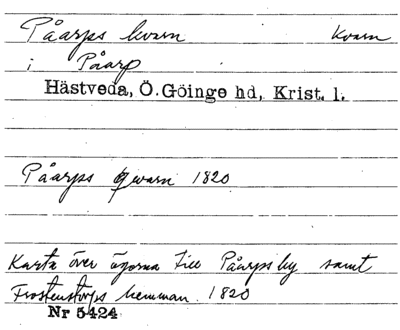 Påarps kvarn Kvarn
i Påarp
Hästveda, Ö. Göinge hd, Krist. l.
Påarps qvarn 1820
Karta över ägorna till Påarps by samt
Frostentorps hemman. 1820
Nr 5424